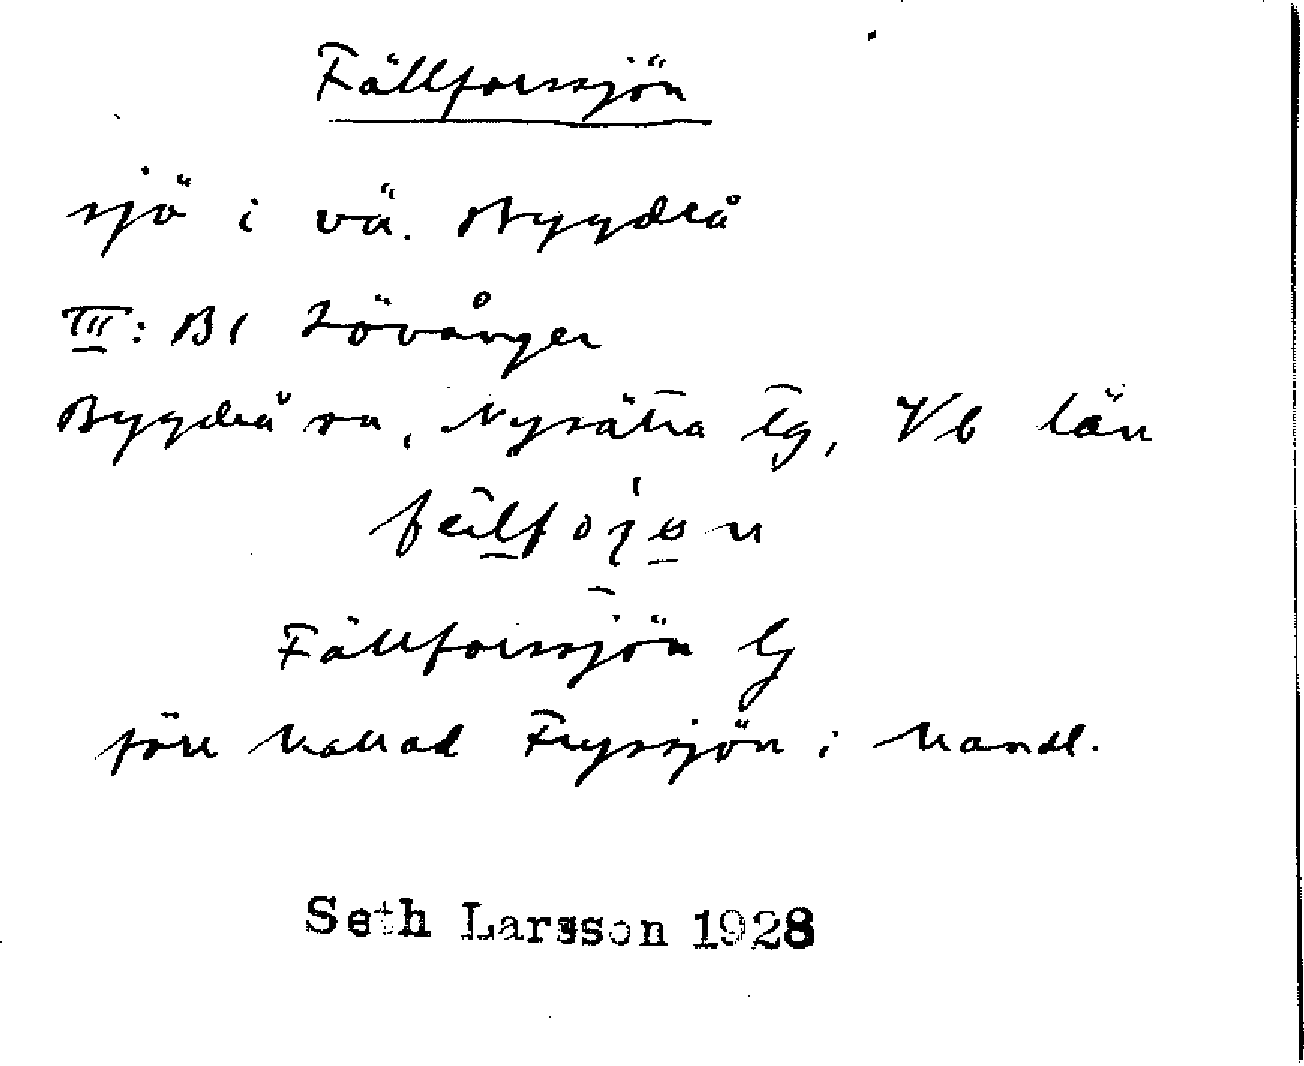 Fällforssjön
sjö i vä. Bygdeå
III: Bl Lövånger
Bygdeå sn, Nysätra tg, Vb län
Fällforssjön
förr kallad Fryssjön i
Seth Larsson 1928